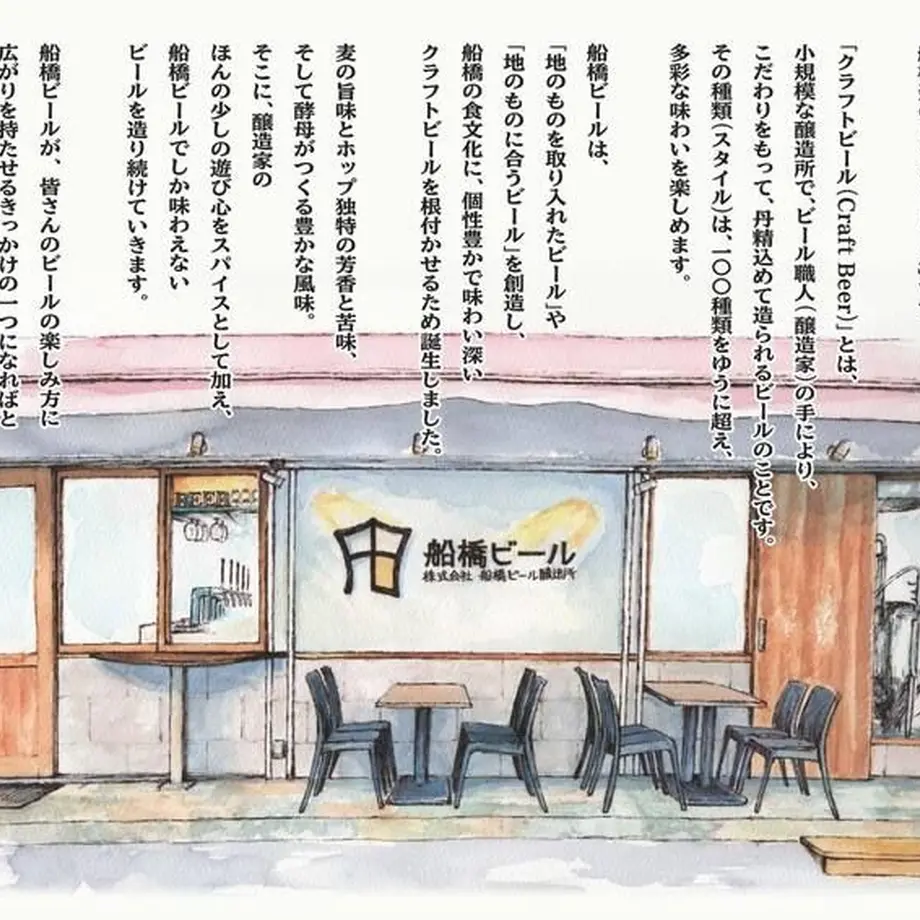 「クラフトビール(Craft Beer)」とは、
小規模な醸造所で、ビール職人(醸造家)の手により、
こだわりをもって、丹精込めて造られるビールのことです。
その種類(スタイル)は、一〇〇種類をゆうに超え、
多彩な味わいを楽しめます。
船橋ビールは、
「地のものを取り入れたビール」や
「地のものに合うビール」を創造し、
船橋の食文化に、個性豊かで味わい深い
クラフトビールを根付かせるため誕生しました。
麦の旨味とホップ独特の芳香と苦味、
そして酵母がつくる豊かな風味。
そこに、醸造家の
ほんの少しの遊び心をスパイスとして加え、
船橋ビールでしか味わえない
ビールを造り続けていきます。
船橋ビールが、皆さんのビールの楽しみ方に
広がりを持たせるきっかけの一つになればと
船橋ビール
株式会社 船橋ビール醸造所